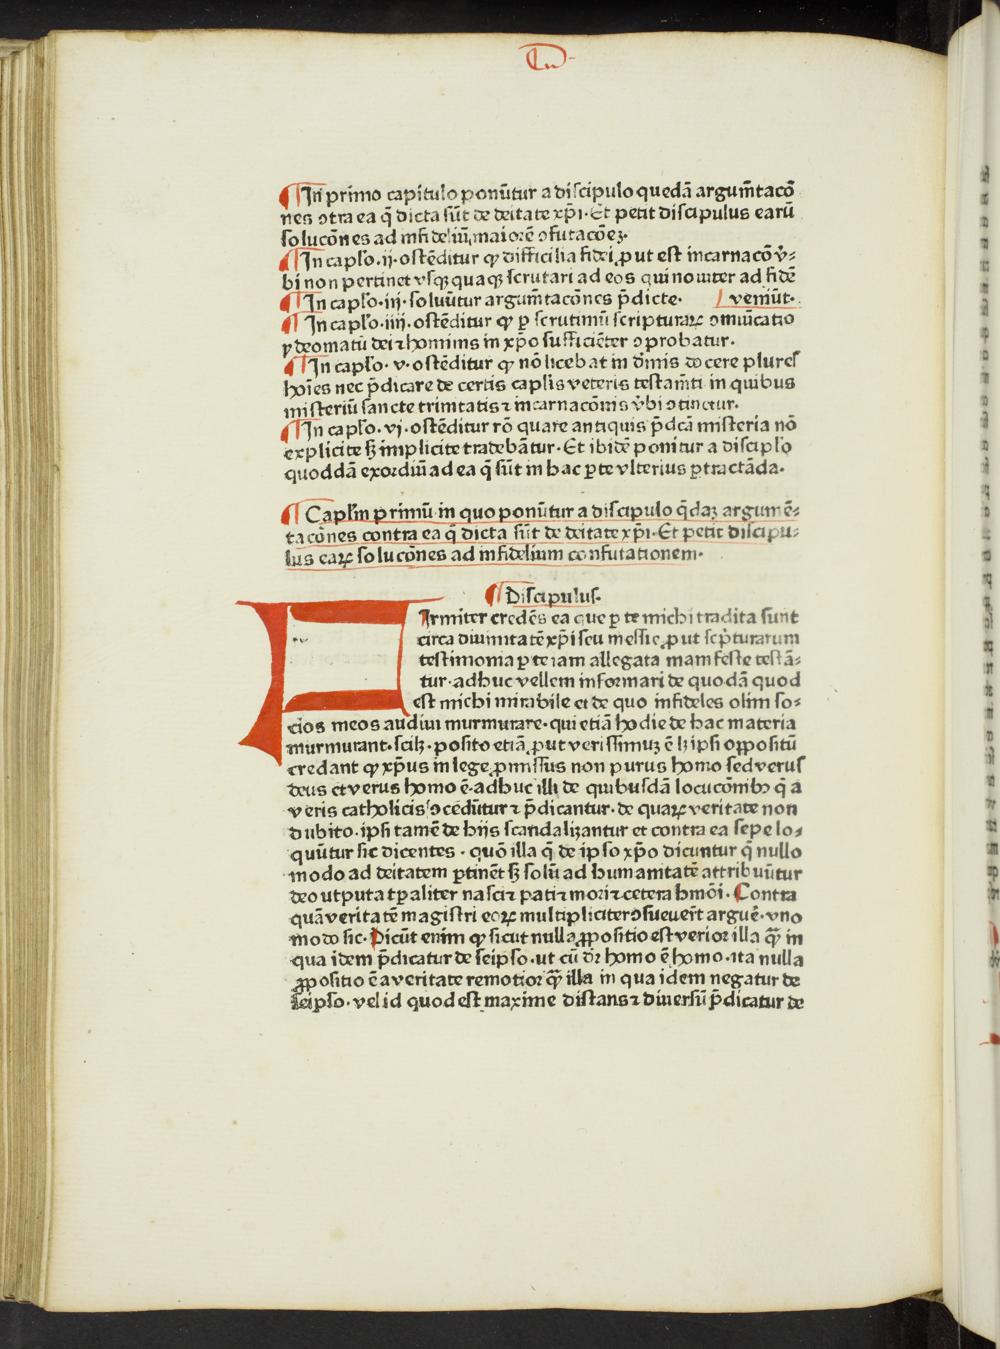 ¶ In primo capitulo ponūtur a discipulo quedā argum̄tacō
nes ꝯtra ea q̄ dicta sūt de deitate xp̄i · Et petit discipulus earū
solucōnes ad infideliū maiorē ꝯfutacōeꝫ.
¶ In capl̓o · ij · ostēditur qꝫ difficilia fidei ꝓut est incarnacō v̓⸗
bi non pertinet vsqꝫquaqꝫ scrutari ad eos qui nouiter ad fidē
¶ In capl̓o · iij · soluūtur argum̄tacōnes p̄dicte · veniūt ·
¶ In capl̓o · iiij · ostēditur qꝫ ꝑ scrutiniū scripturaꝝ ꝯmūicatio
ydeomatū dei ⁊ hominis in xp̄o sufficiēter ꝯprobatur ·
¶ In capl̓o · v · ostēditur qꝫ nō licebat in om̄is docere plures
hoīes nec p̄dicare de certis capl̓is veteris testam̄ti in quibus
misteriū sancte trinitatis ⁊ incarnacōnis v̓bi ꝯtinetur ·
¶ In capl̓o · vj · ostēditur rō quare antiquis p̄dcā misteria nō
explicite sꝫ implicite tradebātur · Et ibidē ponitur a discipl̓o
quoddā exordiū ad ea q̄ sūt in hac ꝑte vlterius ꝑtractāda ·
¶ Capl̓m primū in quo ponūtur a discipulo q̄daꝫ argumē⸗
tacōnes contra ea q̄ dicta sūt de deitate xp̄i · Et petit discipu⸗
lus eaꝝ solucōnes ad infidelium confutationem ·
¶ Discipulus ·
FIrmiter credēs ea que ꝑ te michi tradita sunt
circa diuinitatē xp̄i seu messie ꝓut scp̓turarum
testimonia ꝑ te iam allegata manifeste testā⸗
tur · adhuc vellem informari de quodā quod
est michi mirabile et de quo infideles olim so⸗
cios meos audiui murmurare · qui etiā hodie de hac materia
murmurant · scilꝫ · posito etiā ꝓut verissimuꝫ ē lꝫ ipsi oppositū
credant qꝫ xp̄us in lege ꝓmissus non purus homo sed verus
deus et verus homo ē · adhuc illi de quibusdā locucōnibꝫ q̄ a
veris catholicis ꝯcedūtur ⁊ p̄dicantur · de quaꝝ veritate non
dubito · ipsi tamē de hijs scandalizantur et contra ea sepe lo⸗
quūtur sic dicentes · quō illa q̄ de ipso xp̄o dicuntur q̄ nullo
modo ad deitatem ꝑtinēt sꝫ solū ad humanitatē attribuūtur
deo utputa tp̄aliter nasci ⁊ pati ⁊ mori ⁊ cetera hm̄ōi · Contra
quā veritatē magistri eoꝝ multipliciter ꝯsueuer̄t arguē̓ · vno
modo sic · Dicūt enim qꝫ sicut nulla ꝓpositio est verior illa qꝫ̄ in
qua idem p̄dicatur de seipso · ut cū dr̄ homo ē homo · ita nulla
ꝓpositio ē a veritate remotior qꝫ̄ illa in qua idem negatur de
seipso · vel id quod est maxime distans ⁊ diuersū p̄dicatur de